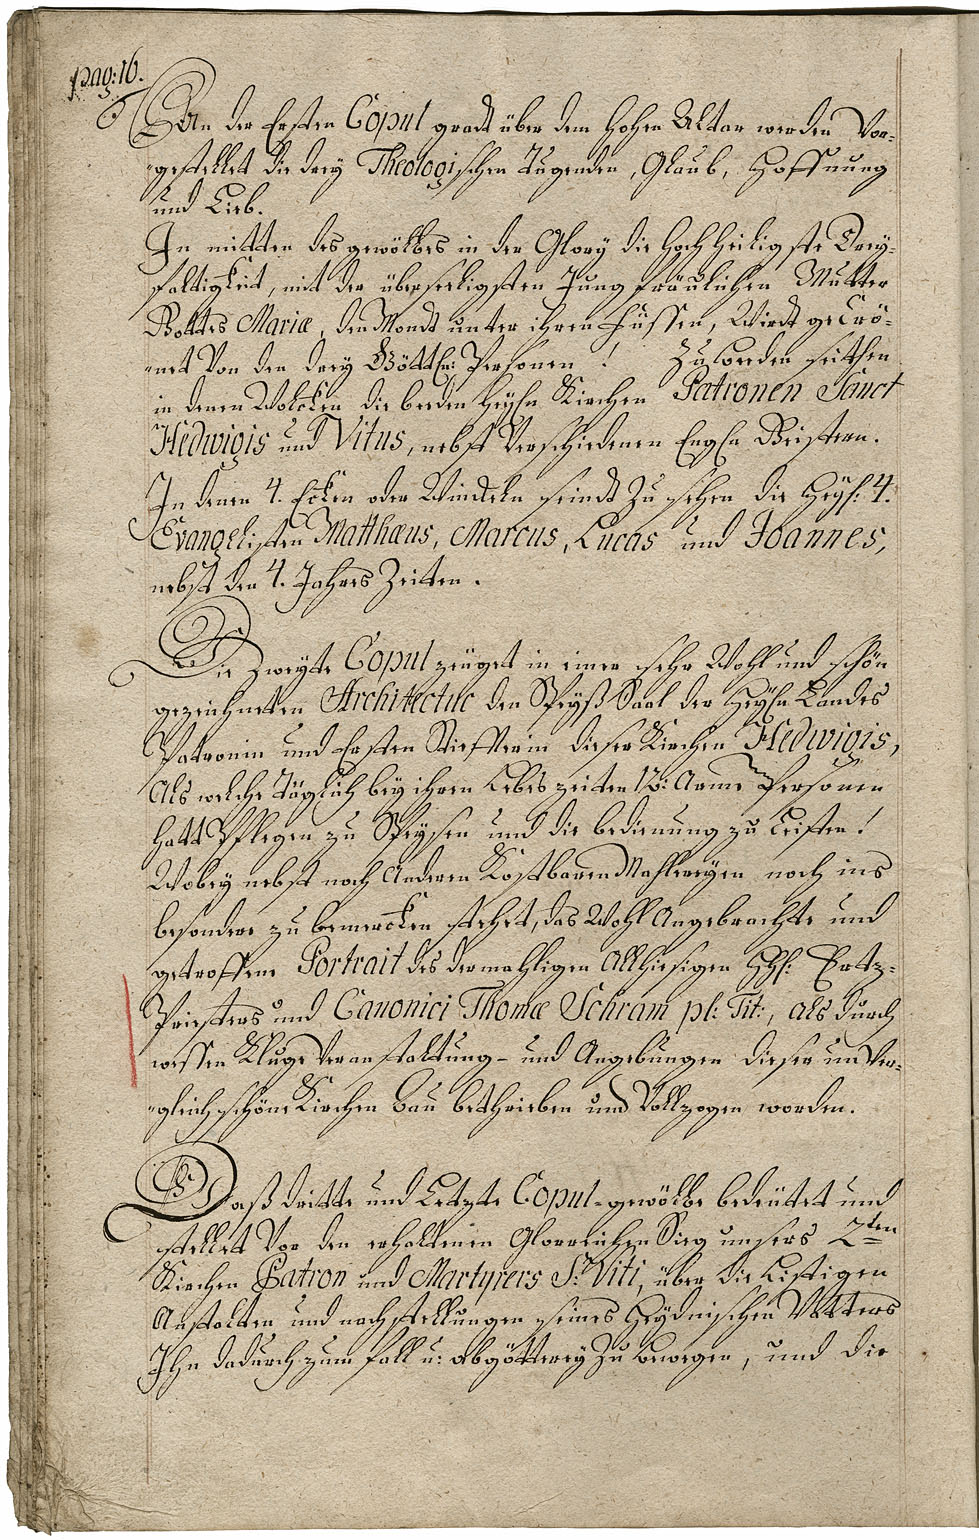 pag: 16.
An der Ersten Copul gradt über dem hohen Altar werden vor-
-gestellet die drey Theologischen Tugenden, Glaub, Hoffnung
und Lieb.
In mitten des gewölbes in der Glory die hoch heiligste Drey-
faltigkeit, mit der überseeligsten Jungfräulichen Mutter
Gottes Mariæ, den Mondt unter ihren Füssen, Wirdt gecrö-
-net Von den drey Göttln: Personen! Zu beeden seithen
in denen Wolcken die beeden Heyln Kirchen Patronen Sanct
Hedwigis und Vitus, nebst Verschiedenen Engln Geistern.
In denen 4. Ecken oder Winckeln seindt zu sehen die Heyl: 4.
Evangelisten Matthæus, Marcus, Lucas und Joannes,
nebst den 4. Jahres Zeiten.
Die Zweyte Copul zeüget in einer sehr Wohl und schön
gezeichneten Architectur den Speyß Saal der Heyln Landes
Patronin und Ersten Stiffterin dieser Kirchen Hedwigis,
Als welche Täglich bey ihren Lebes zeiten 12: Arme Personen
hatt Pflegen zu Speysen und die bedienung zu Leisten!
Wobey nebst noch Anderen Kostbaren Mahlereyen noch ins
besondere zu bemercken stehet, das Wohl Angebrachte und
getroffene Portrait des dermahligen Allhiesigen HH: Ertz-
Priesters und Canonici Thomæ Schram pl: Tit:, als durch
wessen Kluge Veranstaltung- und Angebungen dieser unVer-
-gleich schöne Kirchen bau bethrieben und Vollzogen worden.
Daß dritte und Letzte Copul-gewölbe bedeütet und
stellet Vor den erhaltenen Glorreichen Sieg unsers 2ten
Kirchen Patron und Martyrers St: Viti, über die Listigen
Anstalten und nachstellungen seines Heydnischen Vatters
Ihn dadurch zum fall u: abgötterey zu bewegen, und die